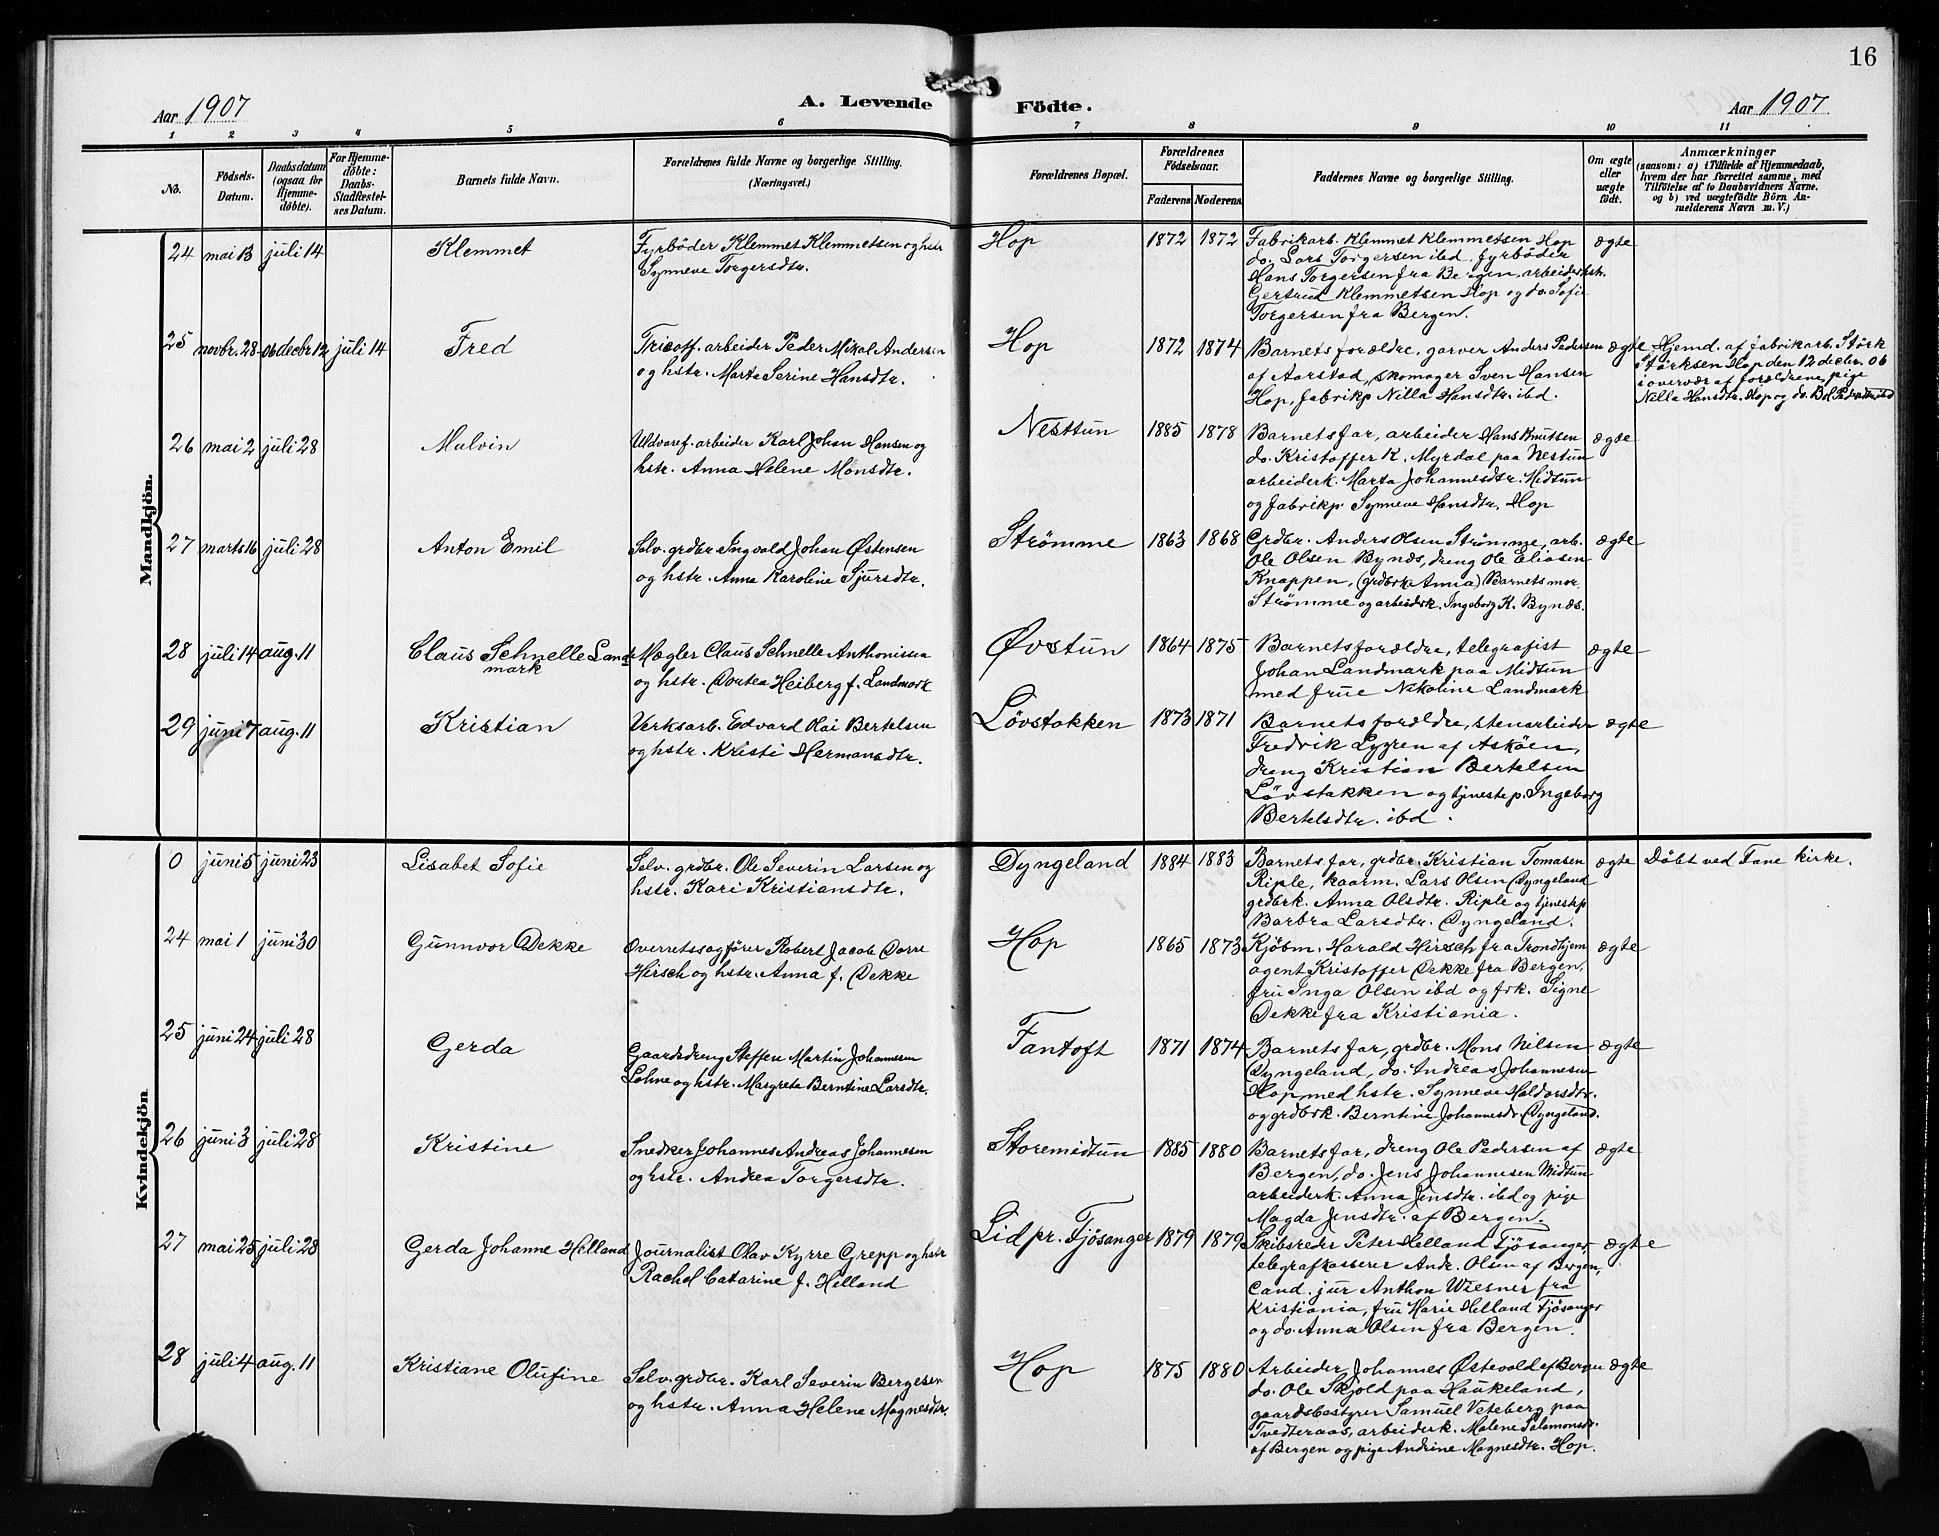 16
Aar 1907
A. Levende Födte.
Aar 1907
1 2 3 4 5 6 7 8 9 10 11
No.
Födsels-
Datum.
Daabsdatum
(ogsaa for
Hjemme-
døbte).
For Hjemme-
døbte:
Daabs-
Stadfæstel-
ses Datum.
Barnets fulde Navn.
Forældrenes fulde Navne og borgerlige Stilling.
(Næringsvei.)
Forældrenes Bopæl.
Forældrenes
Fødselsaar.
Faderens Moderens
Faddernes Navne og borgerlige Stilling.
Om ægte
eller
uægte
født.
Anmærkninger
(saasom: a) i Tilfælde af Hjemmedaab,
hvem der har forrettet samme, med
Tilføielse af to Daabsvidners Navne,
og b) ved uægtefødte Børn An-
melderens Navn m. V.)
Mandkjön.
24 mai 13 juli 14
Klemmet
Fyrbøder Klemmet Klemmetsen og hstr
Synneve Torgersdtr.
Hop
1872 1872
Fabrikarb. Klemmet Klemmetsen Hop
do. Lars Torgersen ibd, fyrbøder
Hans Torgersen fra Bergen, arbeiderhstr.
Gertrud Klemmetsen Hop og do. Sofie
Torgersen fra Bergen.
ægte
25 novbr. 28-06 decbr 12 juli 14
Fred
Tricotf. arbeider Peder Mikal Andersen
og hstr. Marta Serine Hansdtr.
Hop
1872 1874
Barnets forældre, garver Anders Pedersen
af Aarstad, skomager Sven Hansen
Hop, fabrikp Nilla Hansdtr. ibd.
ægte
Hjemd. af fabrikarb. Størk
Størksen Hop den 12 decbr. 06
i overvær af forældrene, pige
Nilla Hansdtr. Hop og do. Bol. Pedersdtr ibd
26 mai 2 juli 28
Malvin
Uldvaref. arbeider Karl Johan Hansen og
hstr. Anna Helene Monsdtr.
Nesttun
1885 1878
Barnets far, arbeider Hans Knutsen
do. Kristoffer K. Myrdal paa Nestun
arbeiderk. Marta Johannesdtr. Midtun
og fabrikp. Synneve Hansdtr. Hop
ægte
27 marts 16 juli 28
Anton Emil
Selv. grdbr. Ingvald Johan Østensen
og hstr. Anna Karoline Sjursdtr.
Strømme
1863 1868
Grdbr. Anders Olsen Strømme, arb.
Ole Olsen Bynæs, dreng Ole Eliasen
Knappen, (grdbrk. Anna) Barnets mor
Strømme og arbeiderk. Ingeborg K. Bynæs.
ægte
28 juli 14 aug. 11
Claus Schnelle Land-
mark
Mægler Claus Schnelle Anthonisen
og hstr. Dortea Heiberg f. Landmark
Øvstun
1864 1875
Barnets forældre, telegrafist
Johan Landmark paa Midtun
med frue Nikoline Landmark
ægte
29 juni 7 aug. 11
Kristian
Verksarb. Edvard Olai Bertelsen
og hstr. Kristi Hermansdtr.
Løvstakken
1873 1871
Barnets forældre, stenarbeider
Fredrik Lygren af Askøen,
dreng Kristian Bertelsen
Løvstakken og tjenestep. Ingeborg
Bertelsdtr. ibd.
ægte
Kvindekjön
0 juni 5 juni 23
Lisabet Sofie
Selv. grdbr. Ole Severin Larsen og
hstr. Kari Kristiansdtr.
Dyngeland
1884 1883
Barnets far, grdbr. Kristian Tomasen
Riple, kaarm. Lars Olsen Dyngeland
grdbrk. Anna Olsdtr. Riple og tjenestep
Barbra Larsdtr. Dyngeland.
ægte
Døbt ved Fane kirke.
24 mai 1 juni 30
Gunnvor Dekke
Overretssagfører Robert Jacob Dorre
Hirsch og hstr. Anna f. Dekke
Hop
1865 1873
Kjøbm. Harald Hirsch fra Trondhjem
agent Kristoffer Dekke fra Bergen,
fru Inga Olsen ibd og frk. Signe
Dekke fra Kristiania.
ægte
25 juni 24 juli 28
Gerda
Gaardsdreng Steffen Martin Johannesen
Lohne og hstr. Margreta Berntine Larsdtr.
Fantoft
1871 1874
Barnets far, grdbr. Mons Nilsen
Dyngeland, do. Andreas Johannesen
Hop med hstr. Synneve Haldorsdtr.
og grdbrk. Berntine Johannesdr. Dyngeland.
ægte
26 juni 3 juli 28
Kristine
Snedker Johannes Andreas Johannesen
og hstr. Andrea Torgersdtr.
Storemidtun
1885 1880
Barnets far, dreng Ole Pedersen af
Bergen, do. Jens Johannesen Midtun
arbeiderk. Anna Jensdtr. ibd og pige
Magda Jensdtr. af Bergen.
ægte
27 mai 25 juli 28
Gerda Johanne Helland
Journalist Olav Kyrre Grepp og hstr
Rachel Catarine f. Helland
Lid pr. Fjøsanger
1879 1879
Skibsreder Peter Helland Fjøsanger,
telegrafkasserer Andr. Olsen af Bergen,
Cand. jur Anthon Wiesner fra
Kristiania, fru Marie Helland Fjøsanger
og do. Anna Olsen fra Bergen.
ægte
28 juli 4 aug. 11
Kristiane Olufine
Selv. grdbr. Karl Severin Bergesen
og hstr. Anna Helene Magnesdtr.
Hop
1875 1880
Arbeider Johannes Østevold af Bergen
do. Ole Skjold paa Haukeland,
gaardsbestyrer Samuel Veteberg paa
Tvedteraas, arbeiderk. Malene Salamonsdr.
af Bergen og pige Andrine Magnesdtr. Hop.
ægte